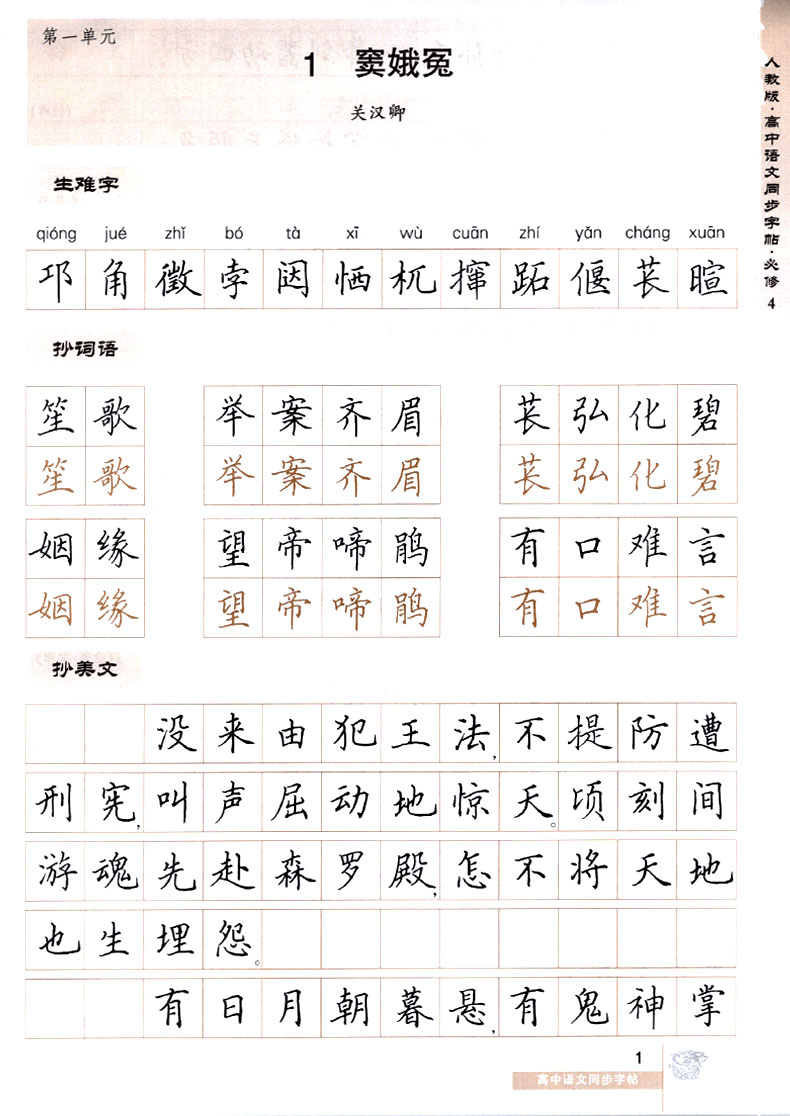 第一单元
1 窦娥冤
关汉卿
人教版·高中语文同步字帖·必修4
生难字
qióng jué zhǐ bó tà xī wù cuān zhí yǎn cháng xuān
邛 角 徵 孛 闼 恓 杌 撺 跖 偃 苌 暄
抄词语
笙歌 举案齐眉 苌弘化碧
笙歌 举案齐眉 苌弘化碧
姻缘 望帝啼鹃 有口难言
姻缘 望帝啼鹃 有口难言
抄美文
没来由犯王法,不提防遭
刑宪,叫声屈动地惊天。顷刻间
游魂先赴森罗殿,怎不将天地
也生埋怨。
有日月朝暮悬,有鬼神掌
1
高中语文同步字帖